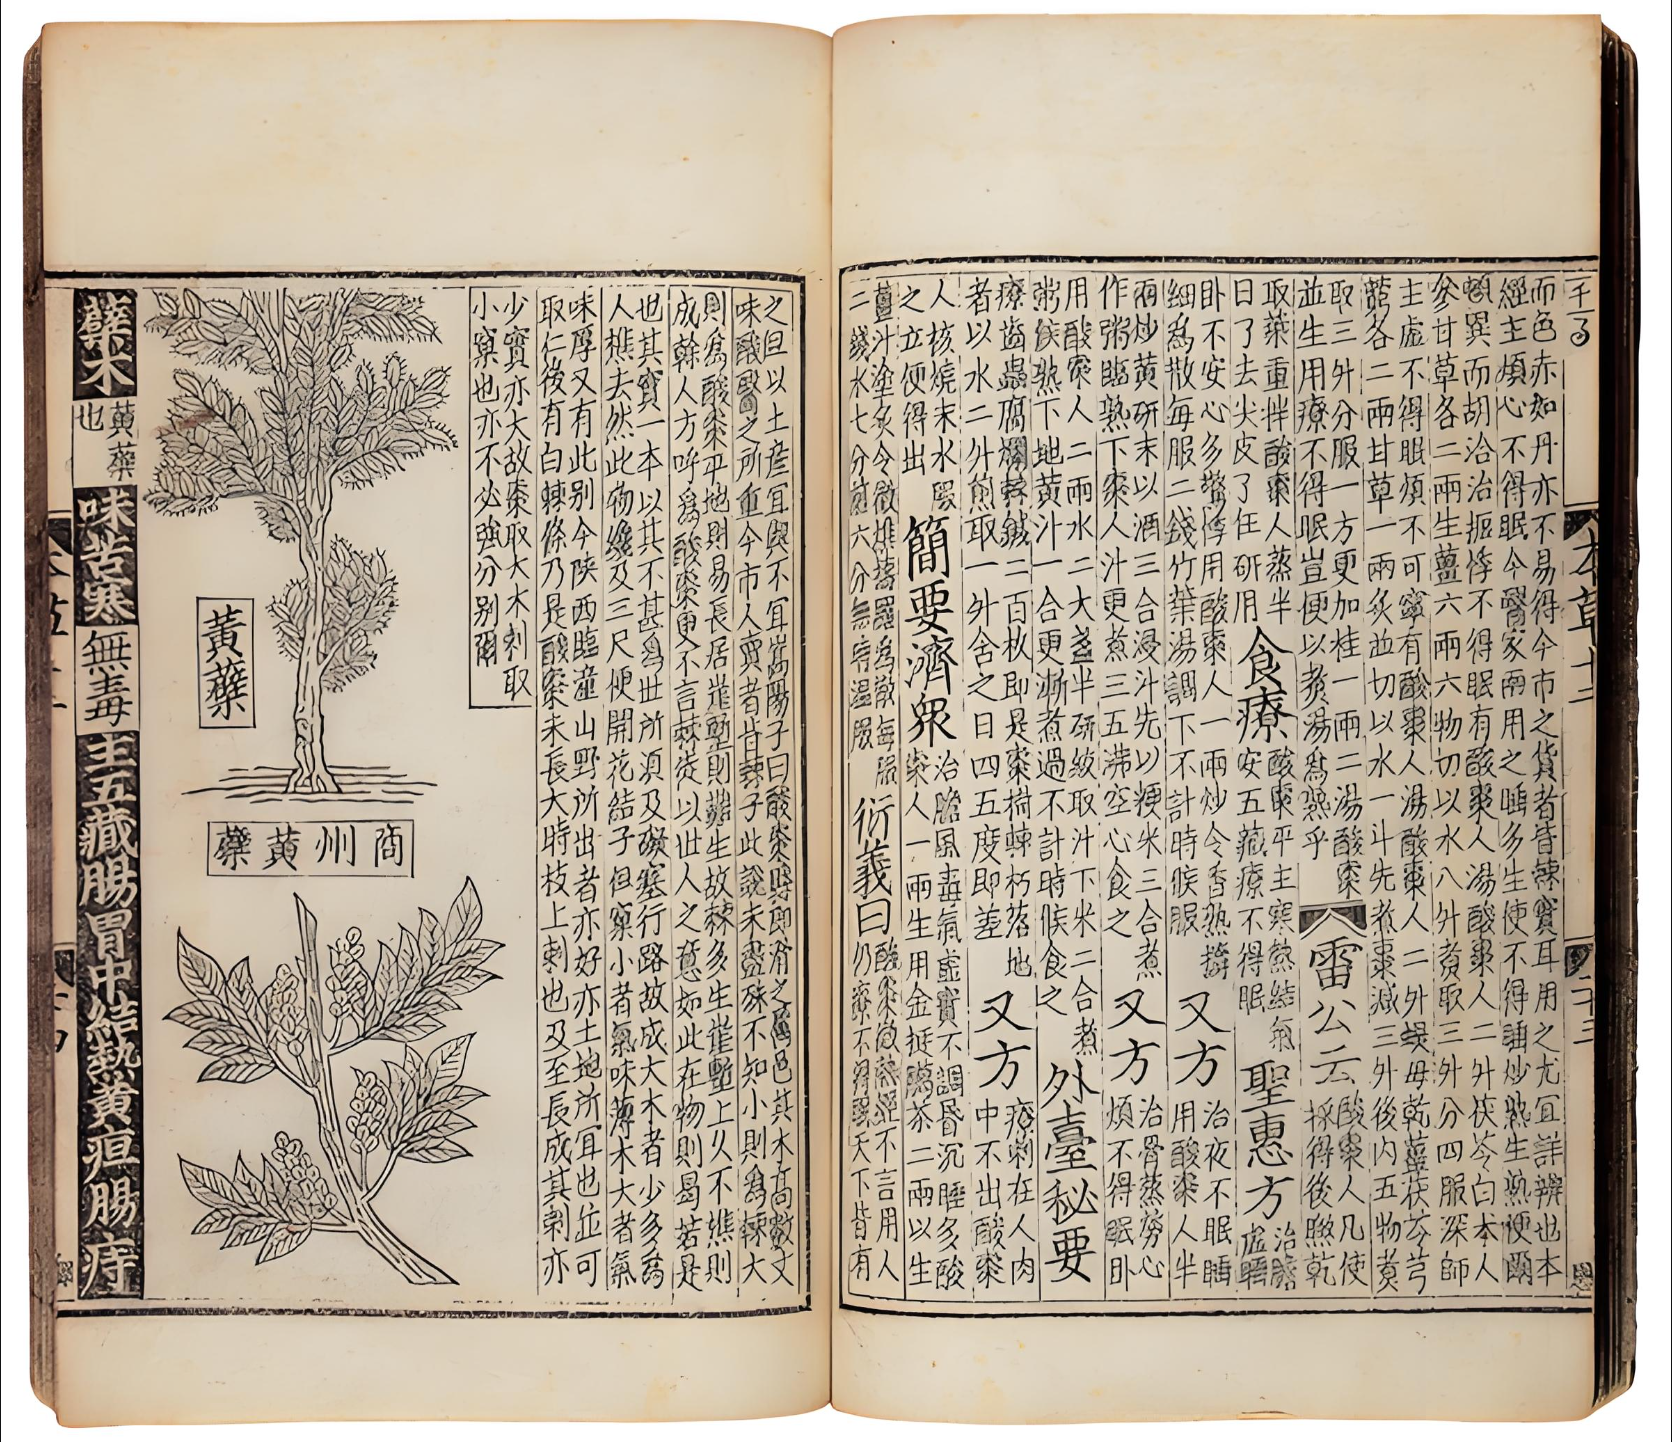 本草十二
二十三
而色赤如丹亦不易得今市之貨者皆棘實耳用之尤宜詳辨也本
經主煩心不得眠今醫家兩用之睡多生使不得睡炒熟生熟便爾
頓異而胡洽治振悸不得眠有酸棗人湯酸棗人二升茯苓白朮人
參甘草各二兩生薑六兩六物切以水八升煮取三升分四服深師
主虛不得眠煩不可寧有酸棗人湯酸棗人二升蝭母乾薑茯苓芎
藭各二兩甘草一兩炙並切以水一斗先煮棗減三升後內五物煑
取三升分服一方更加桂一兩二湯酸棗
並生用療不得眠豈便以煑湯爲熟乎
雷公云
酸棗人凡使
採得後㬠乾
取葉重拌酸棗人蒸半
日了去尖皮了任研用
食療
酸棗平主寒熱結氣
安五藏療不得眠
聖惠方
治膽
虛睡
卧不安心多驚悸用酸棗人一兩炒令香熟擣
細爲散每服二錢竹葉湯調下不計時候服
又方
治夜不眠睡
用酸棗人半
兩炒黄研末以酒三合浸汁先以粳米三合煮
作粥臨熟下棗人汁更煮三五沸空心食之
又方
治骨蒸勞心
煩不得眠卧
用酸棗人二兩水二大盞半研絞取汁下米二合煮
粥候熟下地黄汁一合更漸煮過不計時候食之
外臺秘要
療齒蟲腐爛棘鍼二百枚即是棗樹棘朽落地
者以水二升煎取一升含之日四五度即差
又方
療刺在人肉
中不出酸棗
人核燒末水服
之立便得出
簡要濟衆
治膽風毒氣虛實不調昏沉睡多酸
棗人一兩生用金挺臈茶二兩以生
薑汁塗炙令微燋擣羅爲散每服
二錢水七分煎六分無時温服
衍義曰
酸棗微熱經不言用人
仍療不得眠天下皆有
之但以土産宜與不宜嵩陽子曰酸棗縣即滑之屬邑其木高數丈
味酸醫之所重今市人賣者皆棘子此說未盡殊不知小則爲棘大
則爲酸棗平地則易長居崖塹則難生故棘多生崖塹上久不樵則
成幹人方呼爲酸棗更不言棘徒以世人之意如此在物則曷若是
也其實一本以其不甚爲世所須及礙塞行路故成大木者少多爲
人樵去然此物纔及三尺便開花結子但窠小者氣味薄木大者氣
味厚又有此别今陝西臨潼山野所出者亦好亦土地所宜也並可
取仁後有白棘條乃是酸棗未長大時枝上刺也及至長成其刺亦
少實亦大故棗取大木刺取
小窠也亦不必強分别爾
黃蘗
商州黃蘗
蘗木
黄蘗
也
味苦寒
無毒
主五藏腸胃中結熱黄疸腸痔